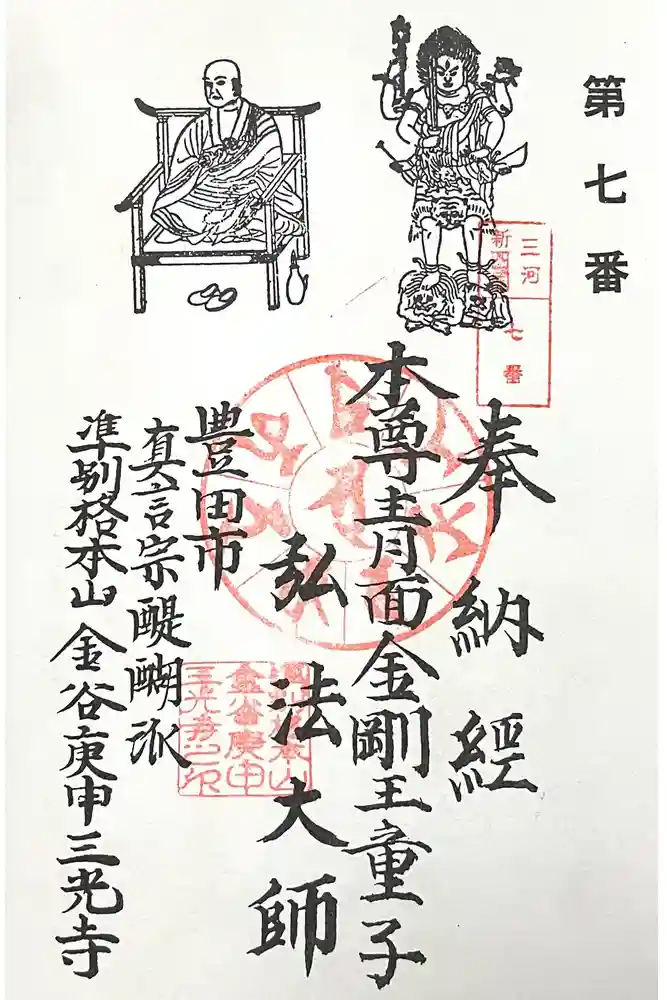 第七番
三河
新四国
七番
奉納經
本尊青面金剛王童子
弘法大師
豊田市
真言宗醍醐派
準別格本山 金谷庚申三光寺